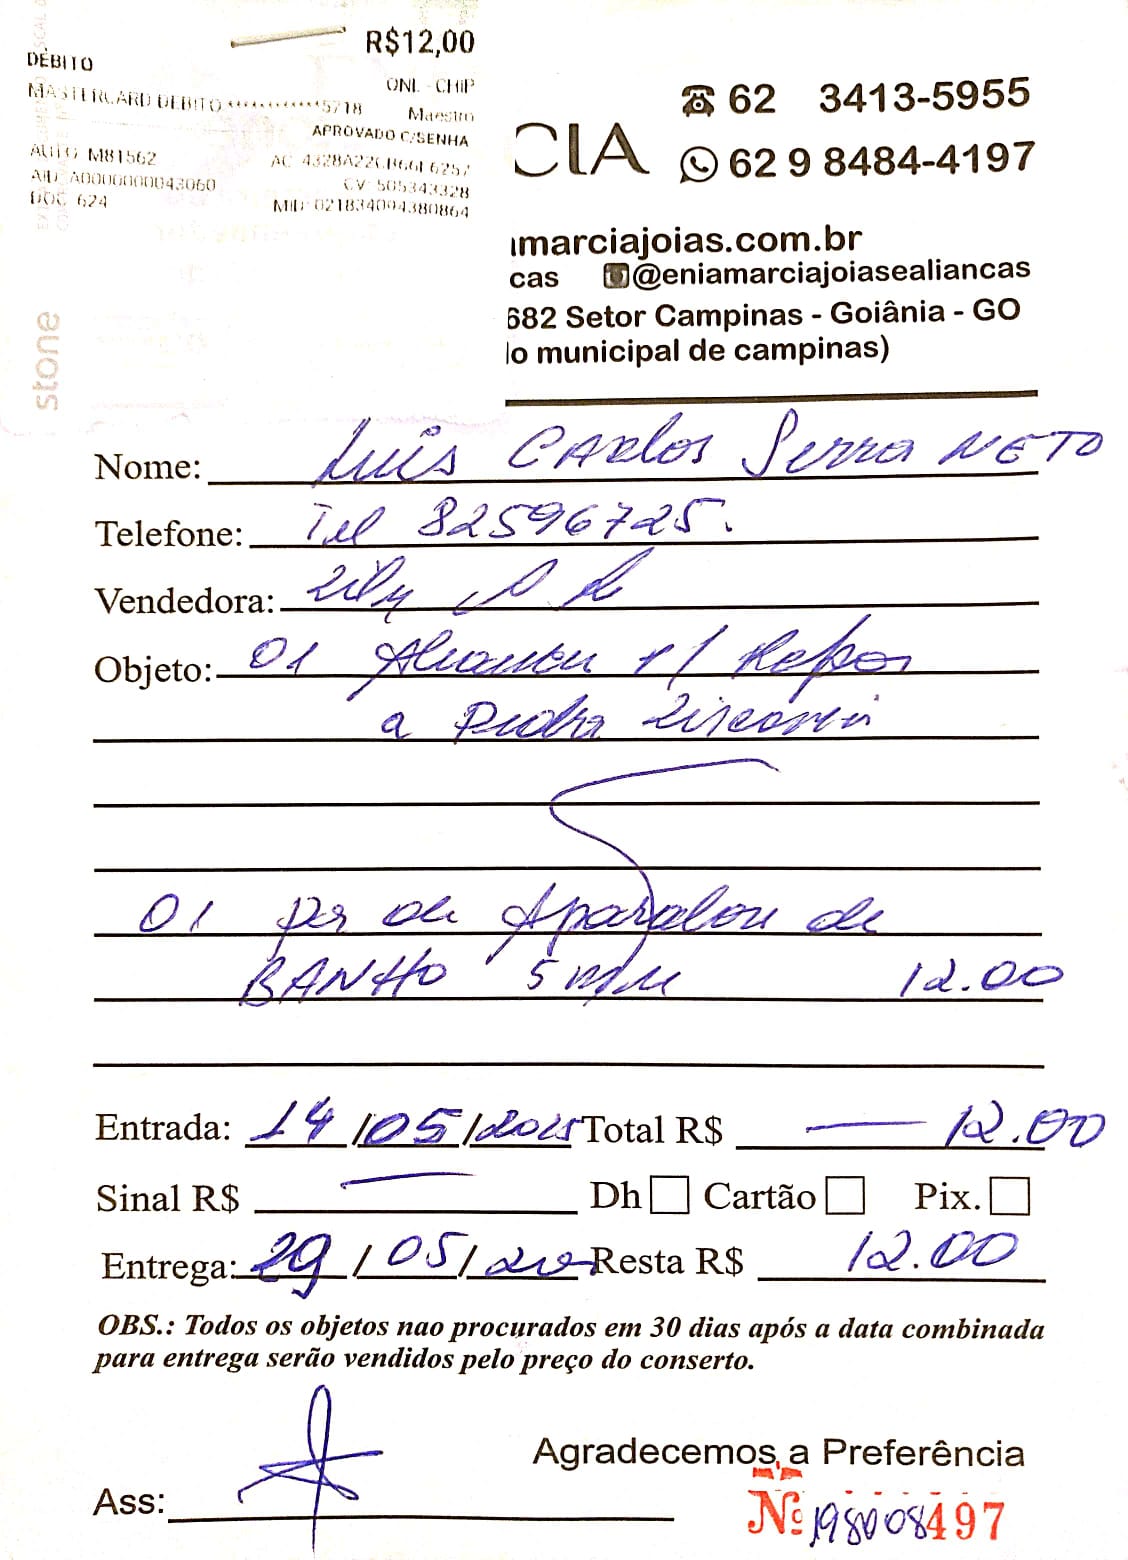 R$12,00
DÉBITO
ONL - CHIP
MASTERCARD DEBITO ************5718
Maestro
APROVADO C/SENHA
AUTO M81562
AID A0000000043060
CV: 505343328
DOC 624
MID: 021834094380864
stone
CIA
62 3413-5955
62 9 8484-4197
marciajoias.com.br
cas @eniamarciajoiasealiancas
682 Setor Campinas - Goiânia - GO
lo municipal de campinas)
Nome: Luis Carlos Serra NETO
Telefone: Tel 82596725.
Vendedora:
Objeto: 01 Alianca p/ Repor
a Pedra Zirconia
01 de
BANHO 5 mm 12.00
Entrada: 14/05/2025 Total R$ 12.00
Sinal R$ Dh Cartão Pix.
Entrega: 29/05/ Resta R$ 12.00
OBS.: Todos os objetos nao procurados em 30 dias após a data combinada
para entrega serão vendidos pelo preço do conserto.
Agradecemos a Preferência
Ass:
Nº 198008497